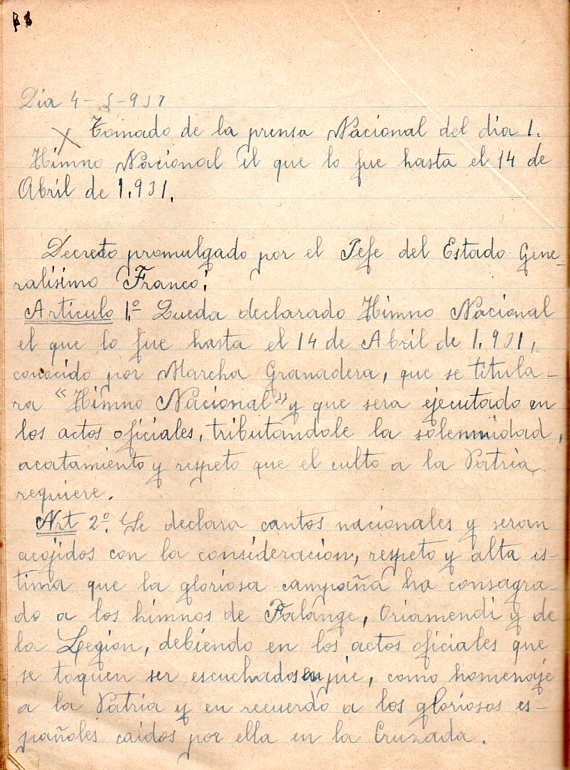 Día 4-3-937
X Tomado de la prensa Nacional del día 1.
Himno Nacional el que lo fue hasta el 14 de
Abril de 1.931.
Decreto promulgado por el Jefe del Estado Gene-
ralísimo Franco:
Artículo 1.º Queda declarado Himno Nacional
el que lo fue hasta el 14 de Abril de 1.931,
conocido por Marcha Granadera, que se titula-
ra "Himno Nacional" y que sera ejecutado en
los actos oficiales, tributandole la solemnidad,
acatamiento y respeto que el culto a la Patria
requiere.
Art 2º. Se declara cantos nacionales y seran
acojidos con la consideracion, respeto y alta es-
tima que la gloriosa campaña ha consagra-
do a los himnos de Falange, Oriamendi y de
la Legion, debiendo en los actos oficiales que
se toquen ser escuchados en pie, como homenaje
a la Patria y en recuerdo a los gloriosos es-
pañoles caidos por ella en la Cruzada.